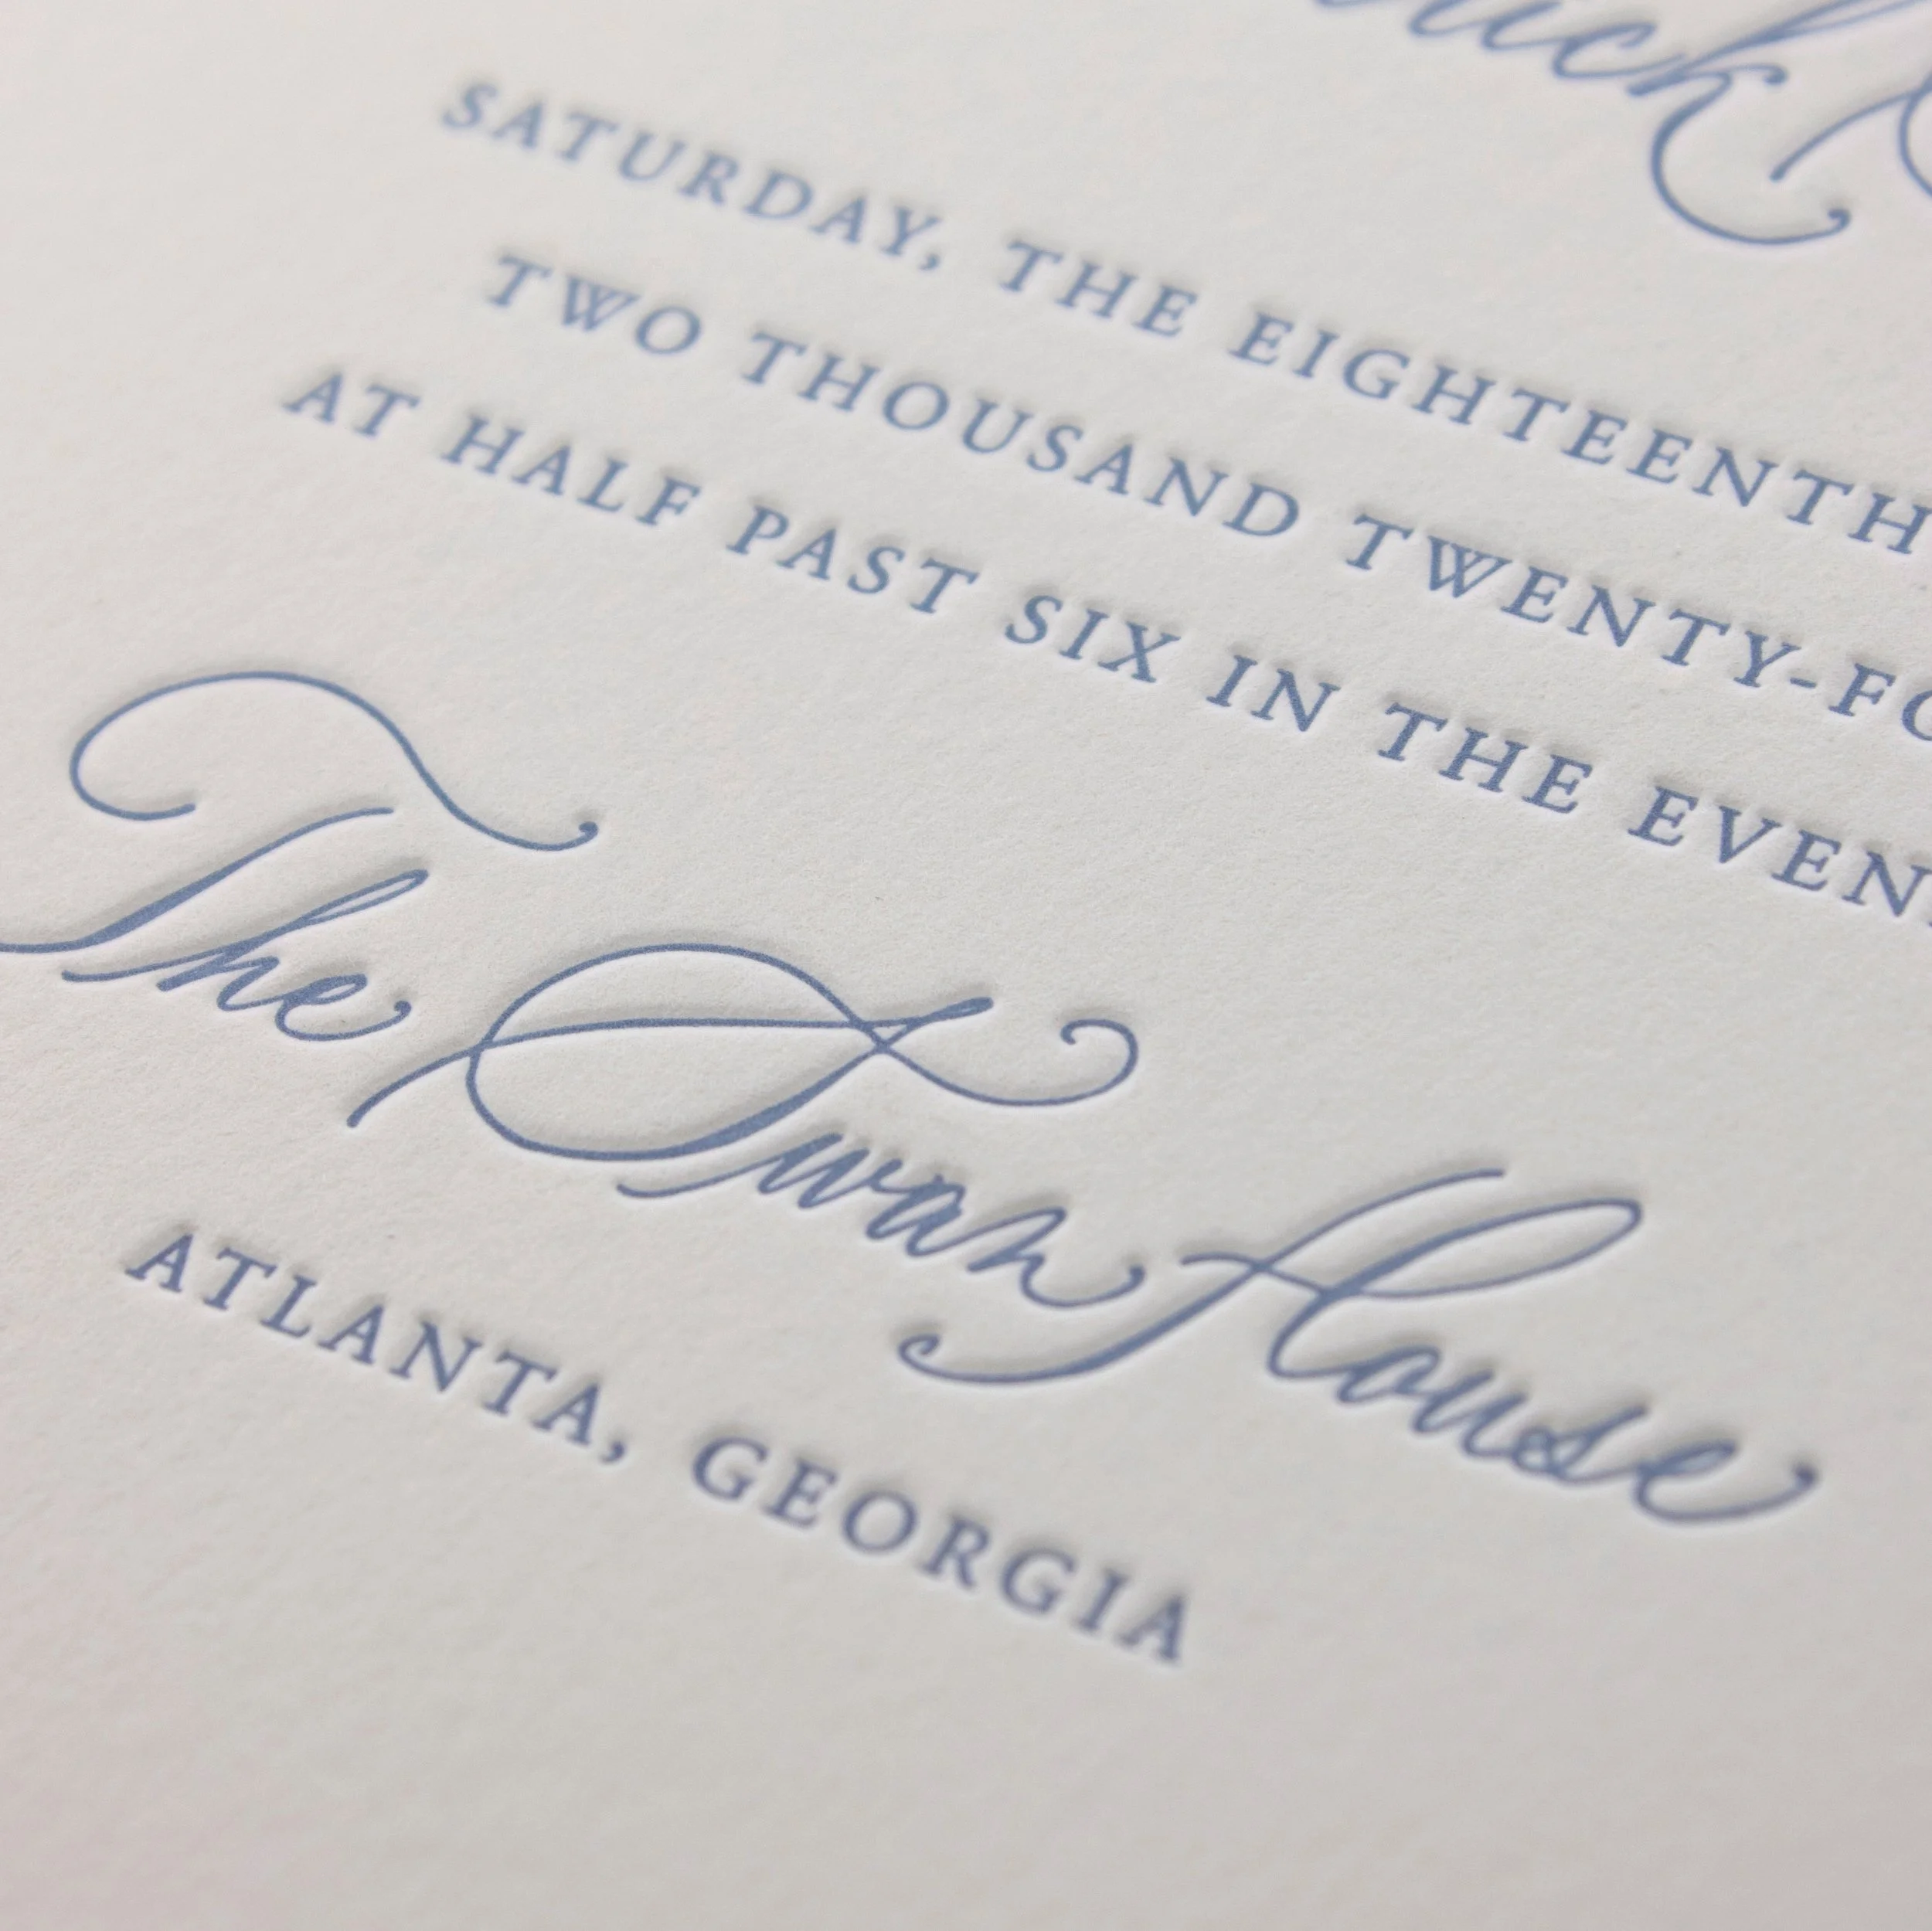 SATURDAY, THE EIGHTEENTH
TWO THOUSAND TWENTY-FO
AT HALF PAST SIX IN THE EVEN
The Swan House
ATLANTA, GEORGIA